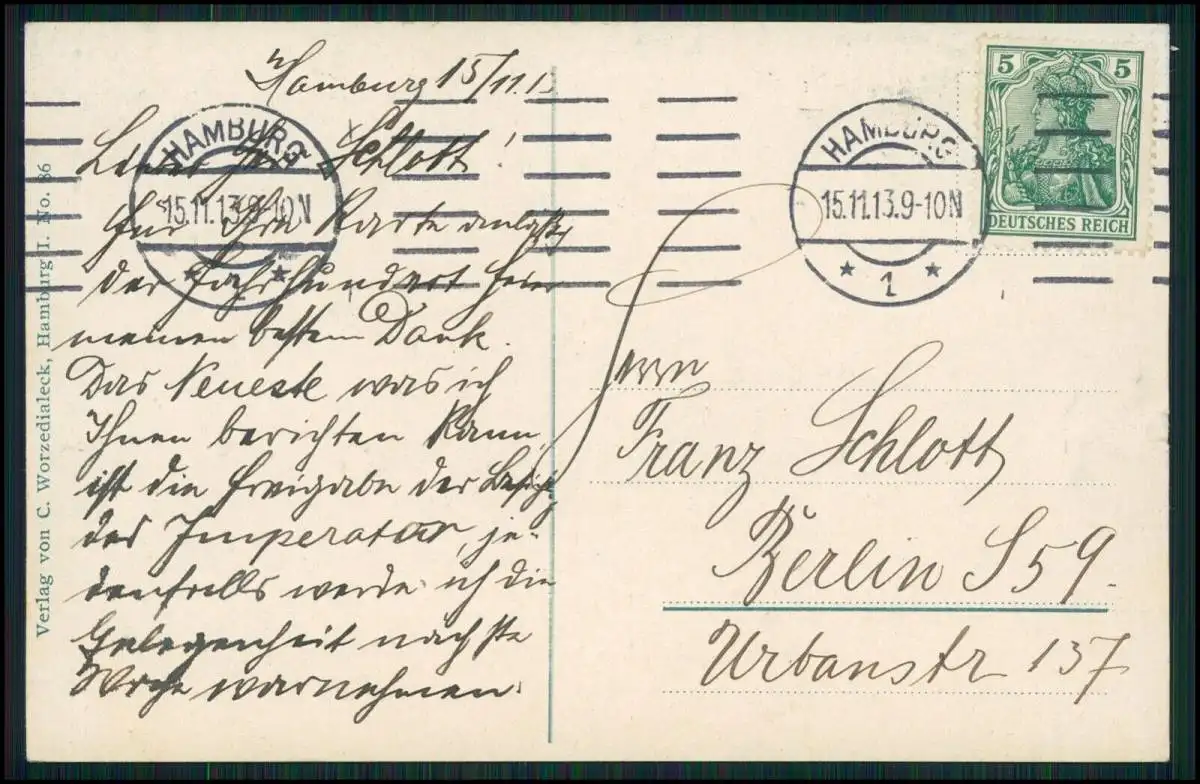 Hamburg 15/11.13
Lieber Herr Schlott!
Für Ihre Karte anläßl.
der Jahrhundert Feier
meinen besten Dank.
Das Neueste was ich
Ihnen berichten kann,
ist die Freigabe der Besicht.
des Imperator, je-
denfalls werde ich die
Gelegenheit nächste
Woche warnehmen.
HAMBURG
15.11.13.9-10N
HAMBURG
15.11.13.9-10N
1
5 5
DEUTSCHES REICH
Herrn
Franz Schlott
Berlin S59.
Urbanstr 137
Verlag von C. Worzedialeck, Hamburg I. No. 86